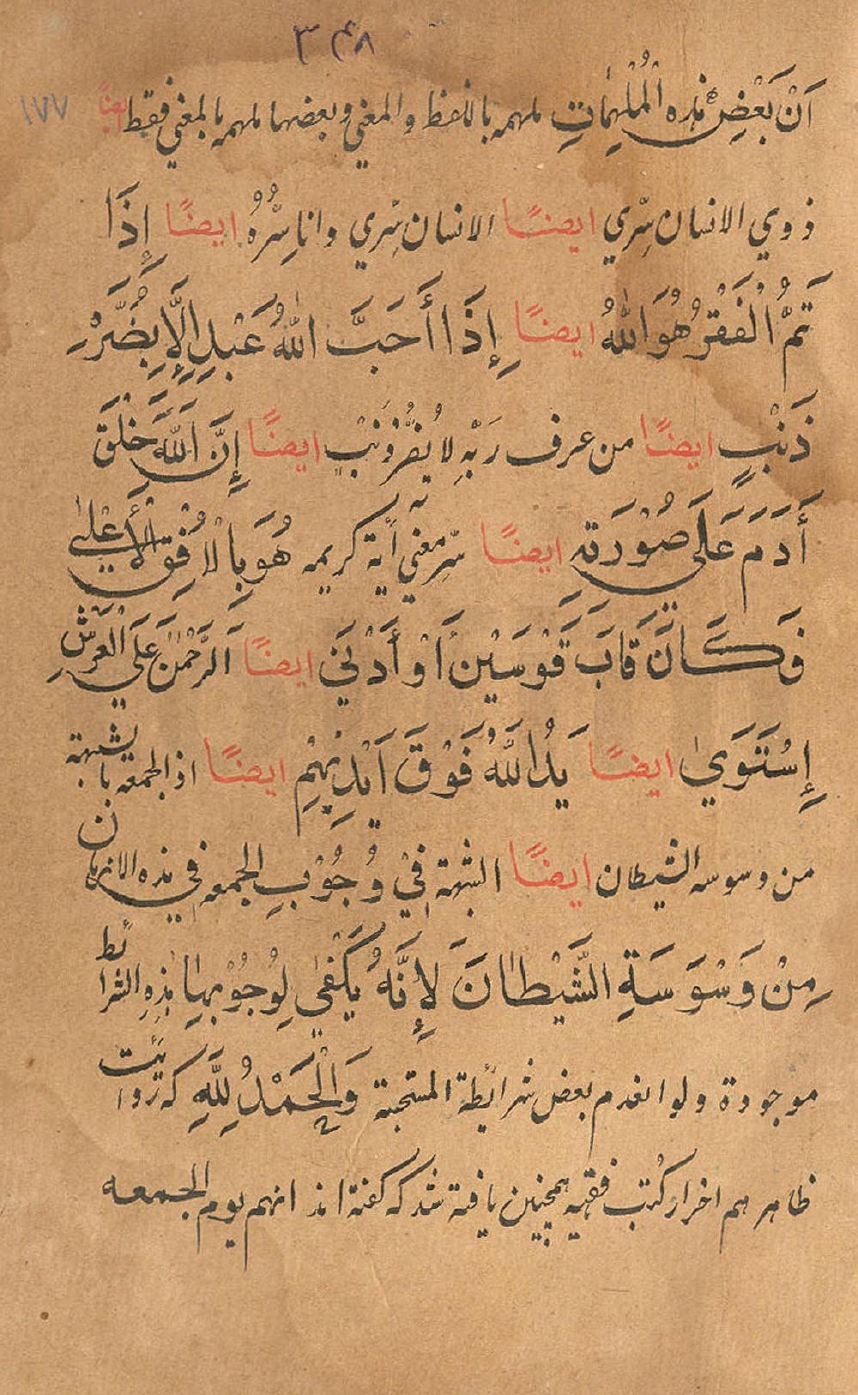 ٣٤٨
١٧٧
اَنْ بَعْضِ هٰذه الْمُلْهِمَاتِ ملهمه باللفظ والمعني وبعضها ملهمه بالمعني فقط ايضًا
ذوي الانسان سِرّي ايضًا الانسان سِري وانا سِرُّهُ ايضًا اِذَا
تَمَّ الْفَقْرُ هُوَ اللهُ ايضًا اِذَا أَحَبَّ اللهُ عَبْدِ الَّا يَضُّرَّهْ
ذَنْبٍ ايضًا من عرف رَبّهِ لا يضُرُّ ذَنْبٍ ايضًا اِنَّ اللّٰهَ خَلَقَ
أَدَمَ عَلَى صُوْرَتِهِ ايضًا سِّر معني آية كريمه هُوَ بِالْاُفُقِ الْأَعْلىٰ
فَكَانَ قَابَ قَوْسَيْنِ اَوْ أَدْنَي ايضًا اَلرَّحْمٰنُ عَلَي الْعَرْشِ
اِسْتَوَيٰ ايضًا يَدُ اللّٰهُ فَوْقَ اَيْدِيْهِمِ ايضًا اذا لجمعه بالشبهة
من وسوسه الشيطان ايضًا الشبهة فِيْ وُجُوْبِ الجمعه في هذه الازمان
مِنْ وَسْوَسَةِ الشَّيْطَانَ لِاَنَّهُ يَكْفِيْ لِوُجُوْبِهَا هٰذِهِ الشرائط
موجودة ولو انعدم بعض شرائطة المستحبة وَالْحَمْدُ لِلّٰهِ كه روايت
ظاهر هم اخرار كتب فقهيه همچنين يافته شد كه گفته اند انهم يوم الجمعه